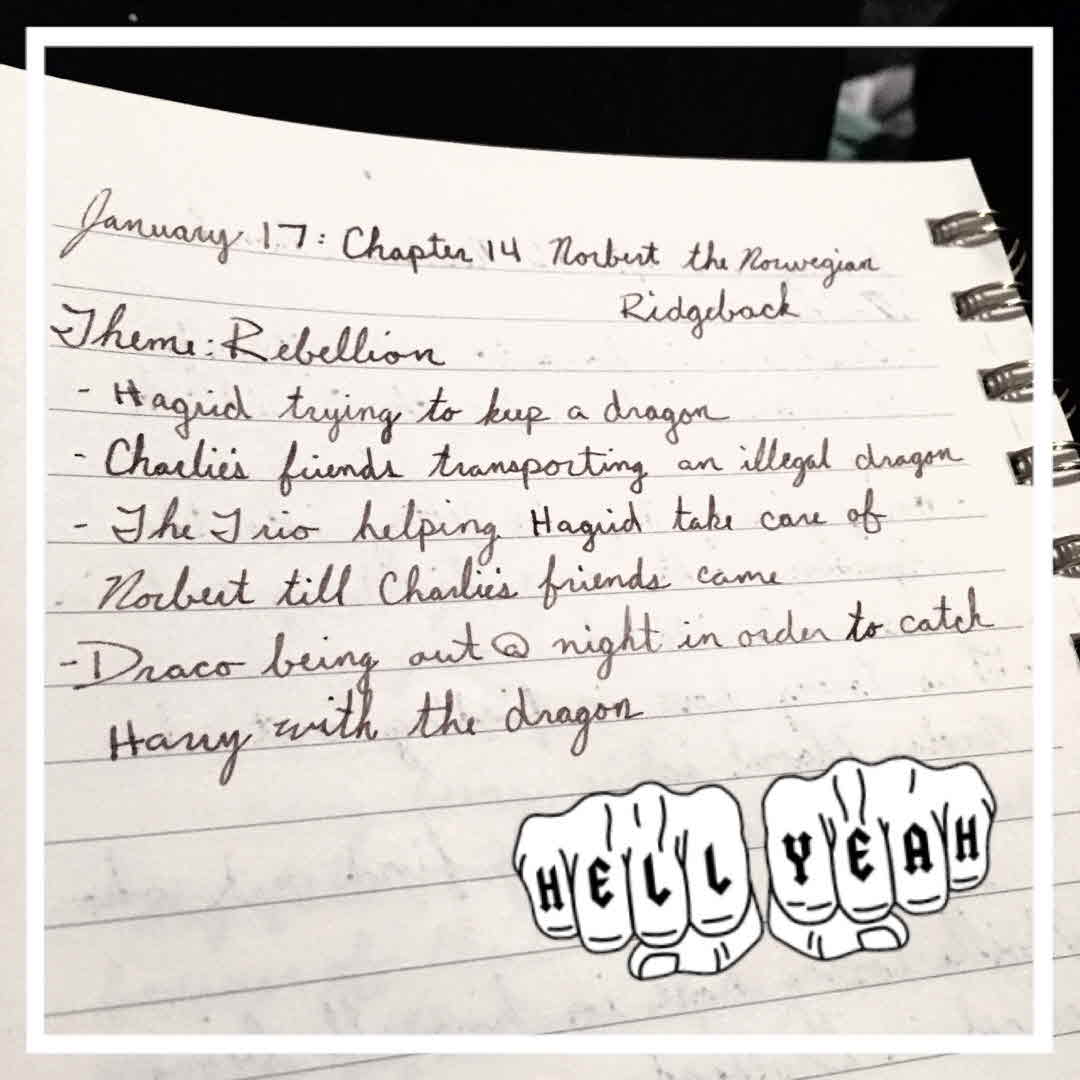 January 17: Chapter 14 Norbert the Norwegian
Ridgeback
Theme: Rebellion
- Hagrid trying to keep a dragon
- Charlie's friends transporting an illegal dragon
- The Trio helping Hagrid take care of
Norbert till Charlie's friends came
- Draco being out @ night in order to catch
Harry with the dragon
HELL YEAH